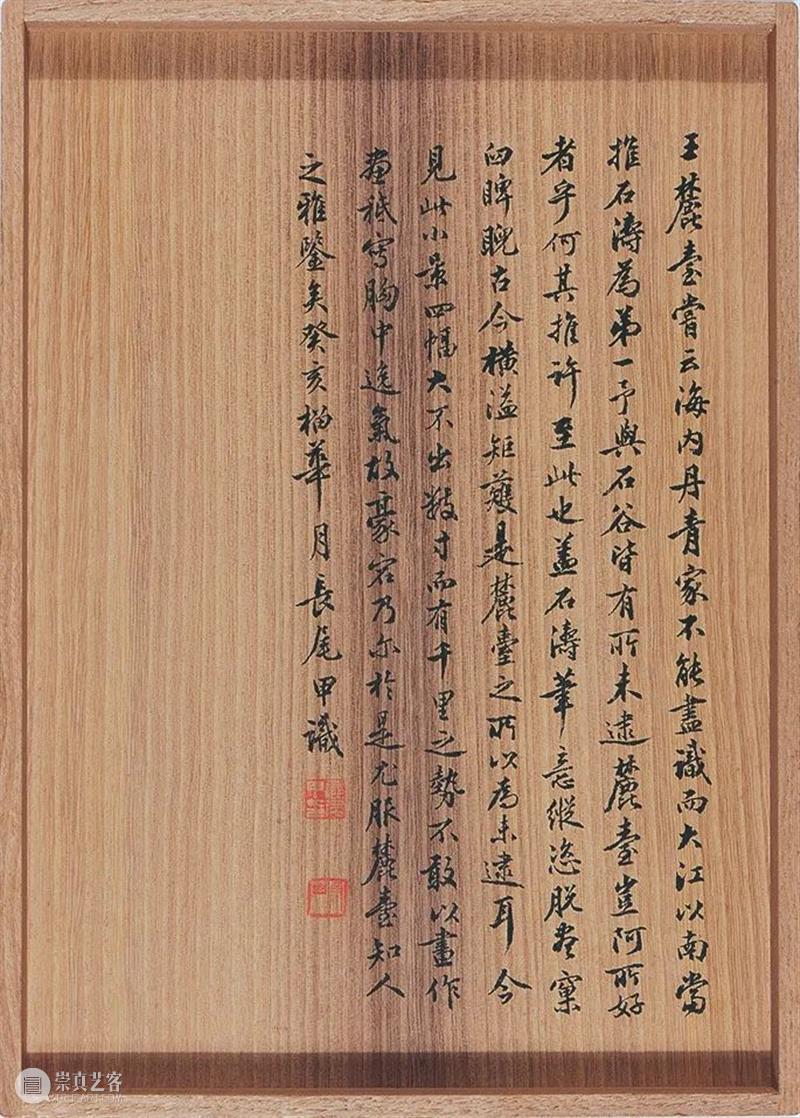 王麓臺嘗云海內丹青家不能盡識而大江以南當
推石濤為第一予與石谷皆有所未逮麓臺豈阿所好
者乎何其推許至此也蓋石濤筆意縱恣脫盡窠
臼睥睨古今橫溢矩矱是麓臺之所以為未逮耳今
見此小景四幅大不出數寸而有千里之勢不敢以畫作
畫秪寫胸中逸氣故豪宕乃尔於是尤服麓臺知人
之雅鑒矣癸亥榴華月長尾甲識
崇真艺客